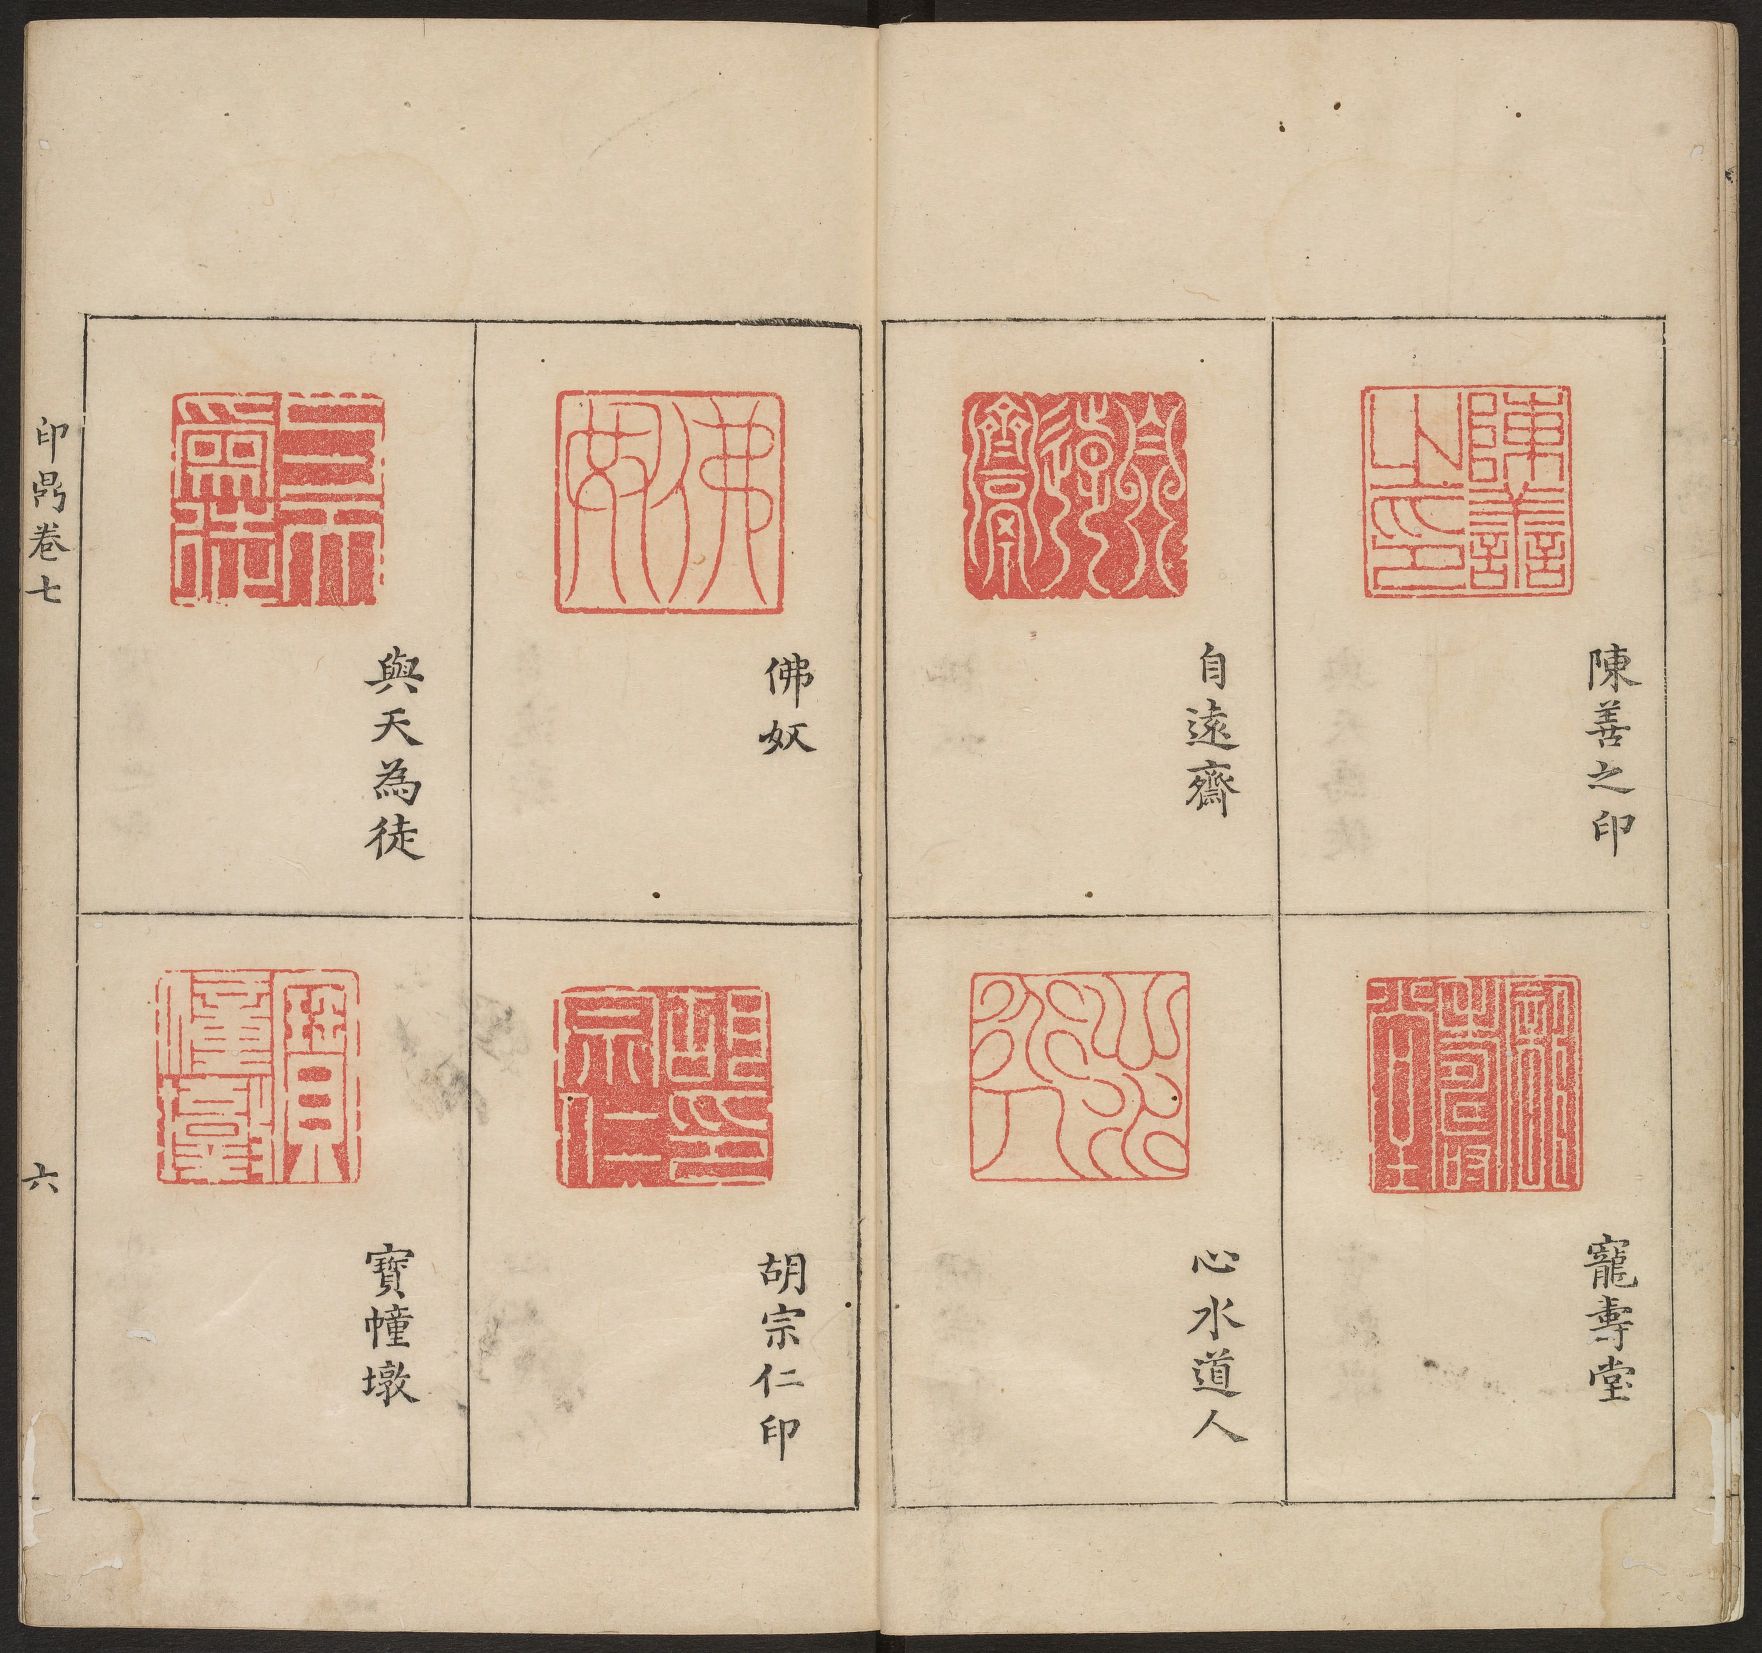 陳善之印
寵壽堂
自遠齋
心水道人
佛奴
胡宗仁印
與天為徒
寶幢墩
印鼎卷七
六